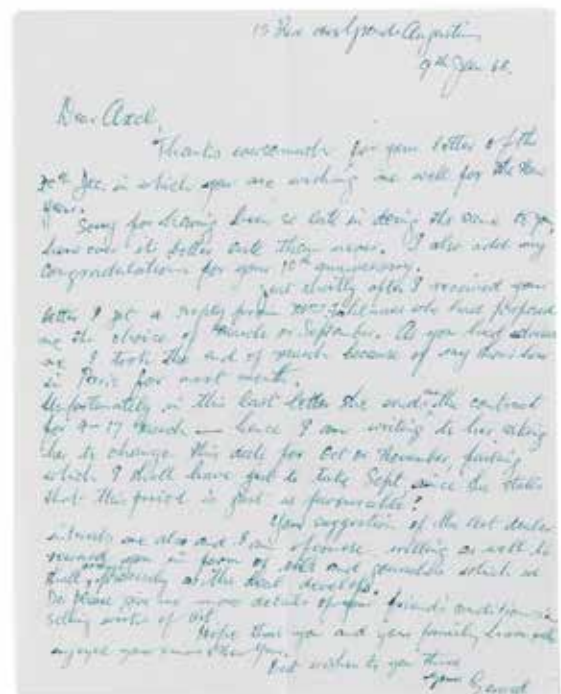 15 Rue des Grands Augustins
9th Jan 60.
Dear Axel,
Thanks very much for your letter of the
Dec. in which you are wishing me well for the New
Year.
Sorry for having been so late in doing the same to you
however it better late then never. I also add my
congratulations for your 10th anniversary.
Just shortly after I received your
letter I got a reply from who had proposed
me the choice of March or September. As you had advised
me I took the end of March because of my
in Paris for next month.
Unfortunately in this last letter she sends the contract
for 4-17 March — hence I am writing to her asking
her to change this date for Oct or November, failing
which I shall have got to take Sept since she states
that this period is just as favourable!
Your suggestion of the art dealer
interests me also and I am of course willing as well to
reward you in form of and which we
shall as the deal develops.
Do please give me more details of your friend's conditions in
selling works of art.
Hope that you and your family have
enjoyed your New Year.
Best wishes to you three
Yours